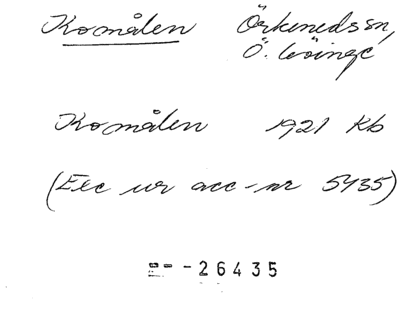 Komålen Örkeneds sn,
Ö. Göinge
Komålen 1921 Kb
(Exc ur acc-nr 5435)
-26435